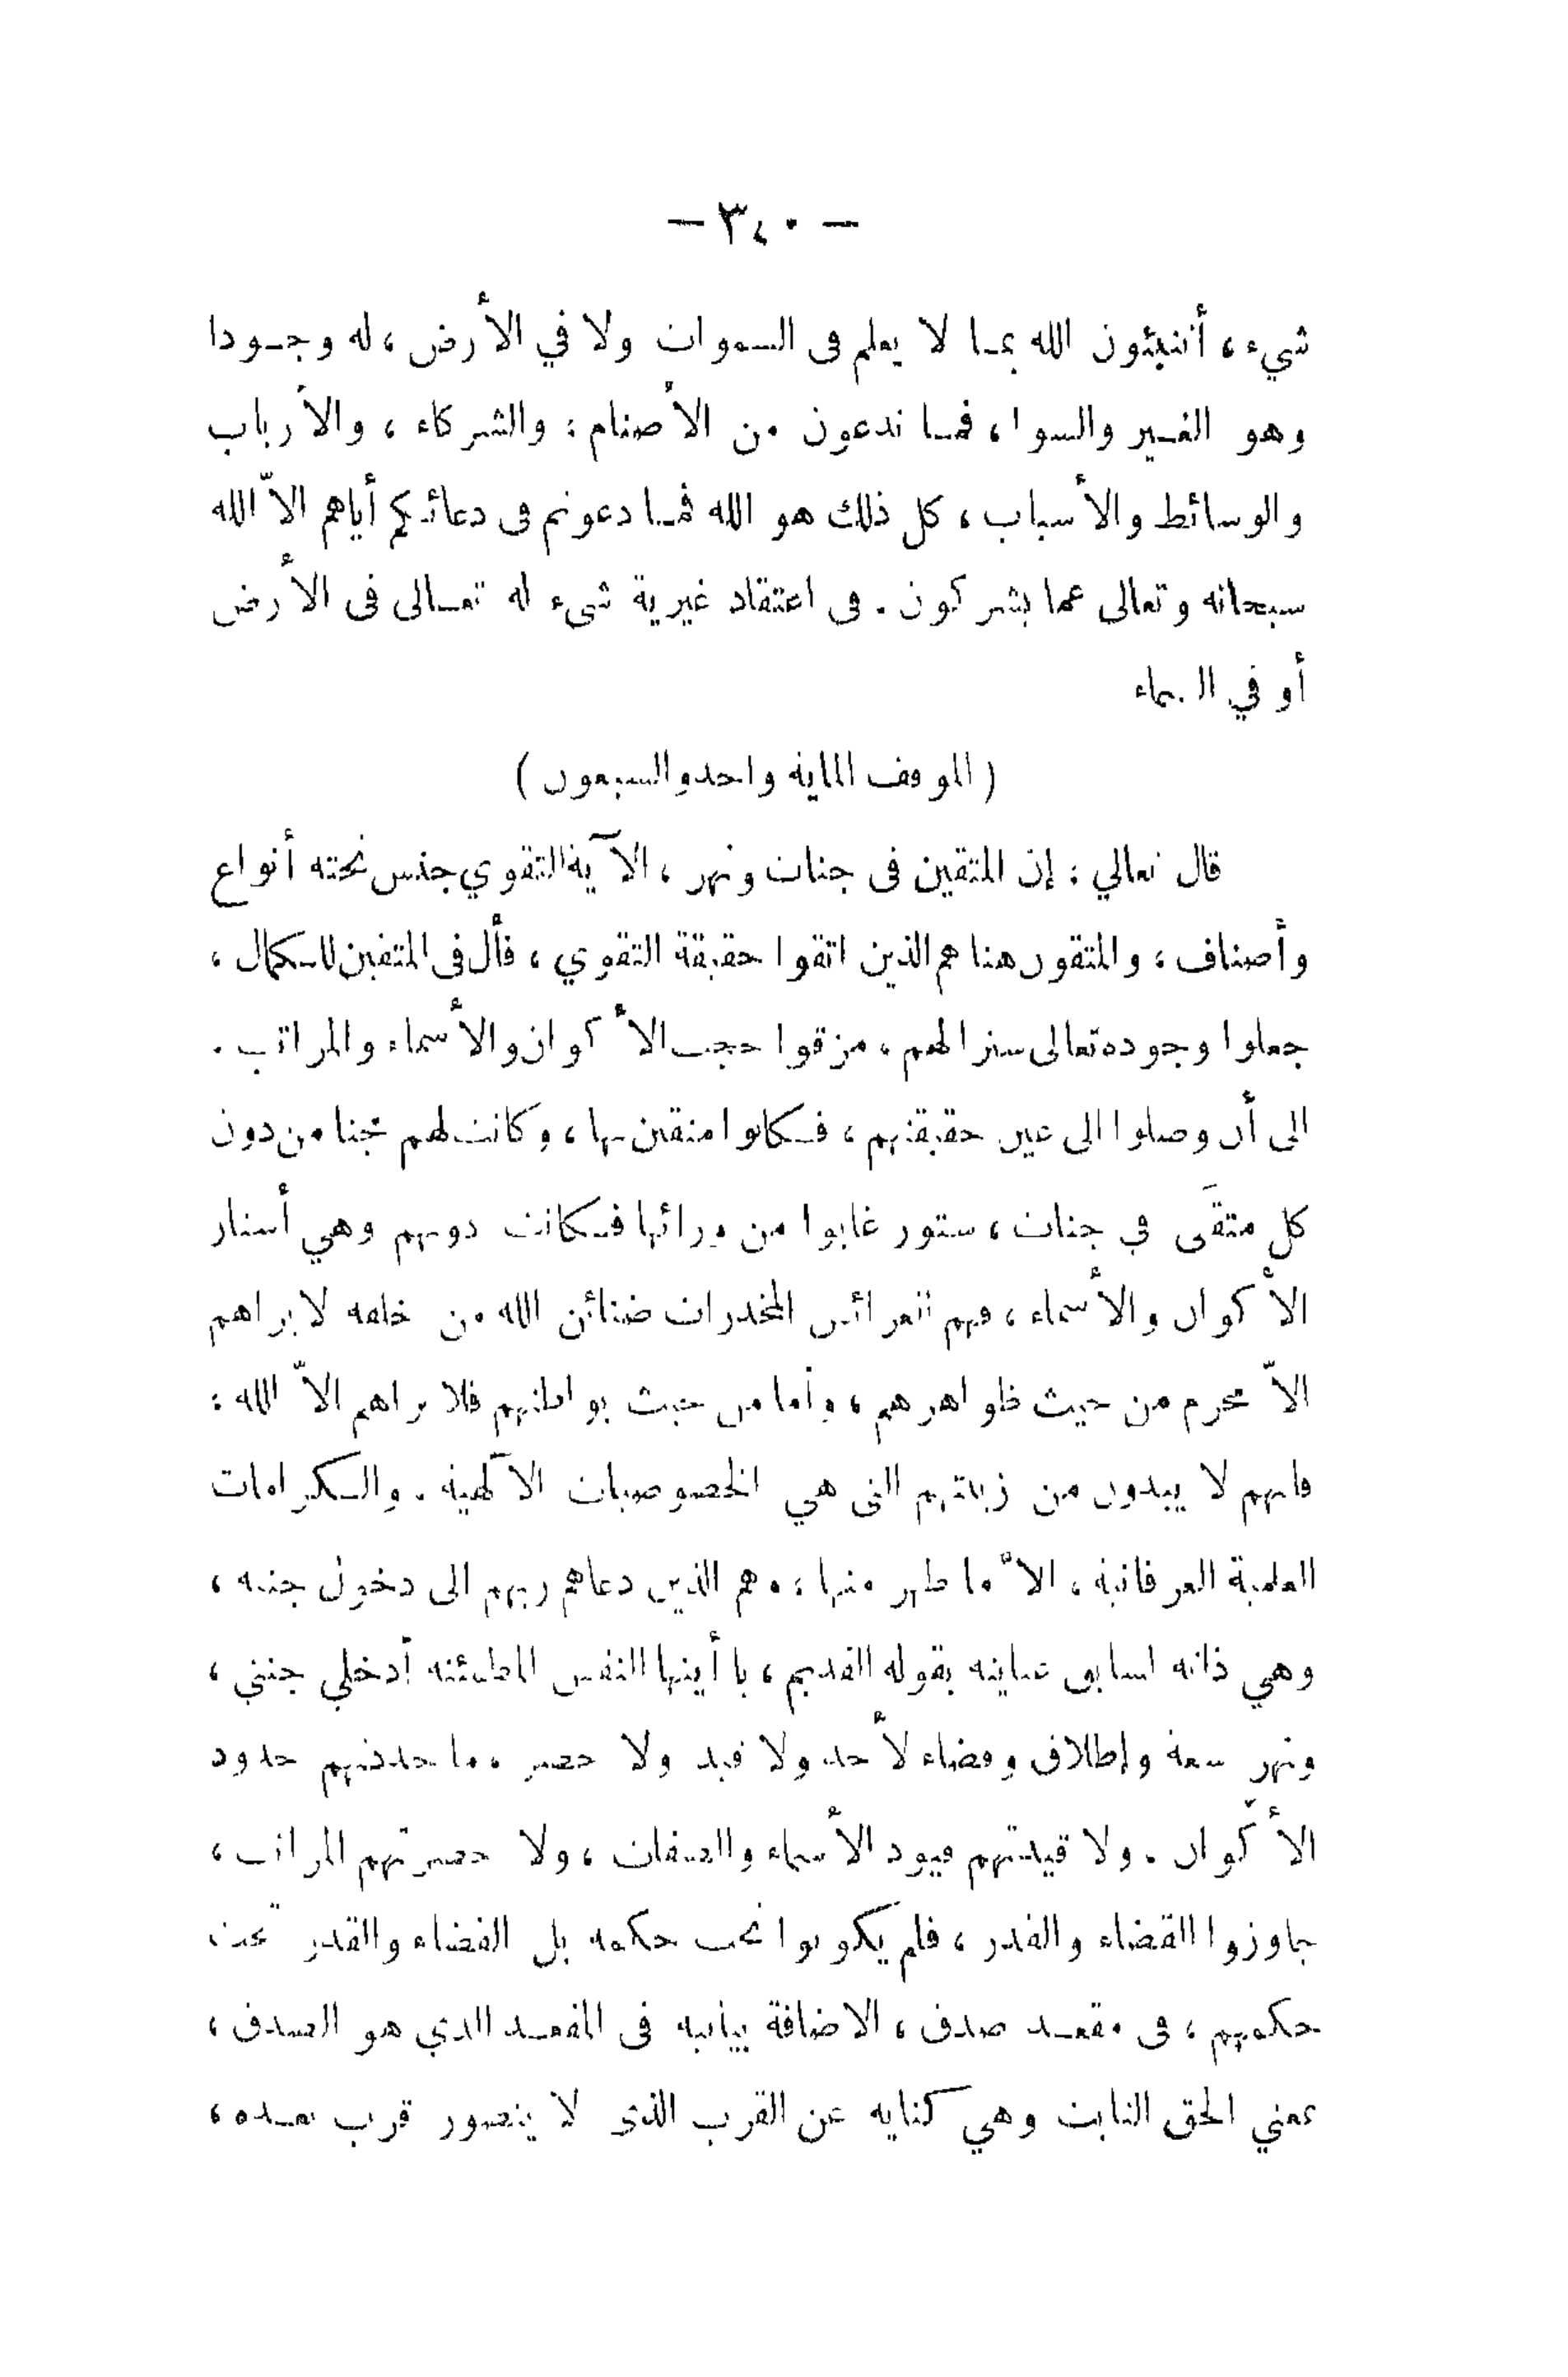 — ٣٤٠ —
شيء، أتنبئون الله بما لا يعلم فى السموات ولا في الأرض، له وجودا
وهو الغير والسوا، فما تدعون من الأصنام: والشركاء، والأرباب
والوسائط والأسباب، كل ذلك هو الله فما دعوتم فى دعائكم أياهم الاّ الله
سبحانه وتعالى عما يشركون. فى اعتقاد غيرية شىء له تعالى فى الأرض
أو في السماء
( الموقف الماية واحد والسبعون )
قال تعالي: إن المتقين فى جنات ونهر، الآية التقوي جنس تحته أنواع
وأصناف، والمتقون هنا هم الذين اتقوا حقيقة التقوي، فأل فى المتقين للكمال،
جعلوا وجوده تعالى سترا لهم، مزقوا حجب الأكوان والأسماء والمراتب.
الى أن وصلوا الى عين حقيقتهم، فكانوا متقين بها، وكانت لهم مجنا من دون
كل متقَى في جنات، ستور غابوا من ورائها فكانت دونهم وهي أستار
الأكوان والأسماء، فهم العرائس المخدرات ضنائن الله من خلقه لا يراهم
الاّ محرم من حيث ظواهرهم، وأما من حيث بواطنهم فلا يراهم الاّ الله:
فانهم لا يبدون من زينتهم التى هي الخصوصيات الآلهية. والكرامات
العلمية العرفانية، الاّ ما ظهر منها، وهم الذين دعاهم ربهم الى دخول جنته،
وهي ذاته لسابق عنايته بقوله القديم، يا أيتها النفس المطمئنة أدخلي جنتي،
ونهر سعة وإطلاق وفضاء لأحد ولا قيد ولا حصر، ما حددتهم حدود
الأكوان. ولا قيدتهم قيود الأسماء والصفات، ولا حصرتهم المراتب،
جاوزوا القضاء والقدر، فلم يكونوا تحت حكمه بل القضاء والقدر تحت
حكمهم، فى مقعد صدق، الاضافة بيانية فى المقعد الذي هو الصدق،
بمعني الحق الثابت وهي كناية عن القرب الذى لا يتصور قرب بعده،